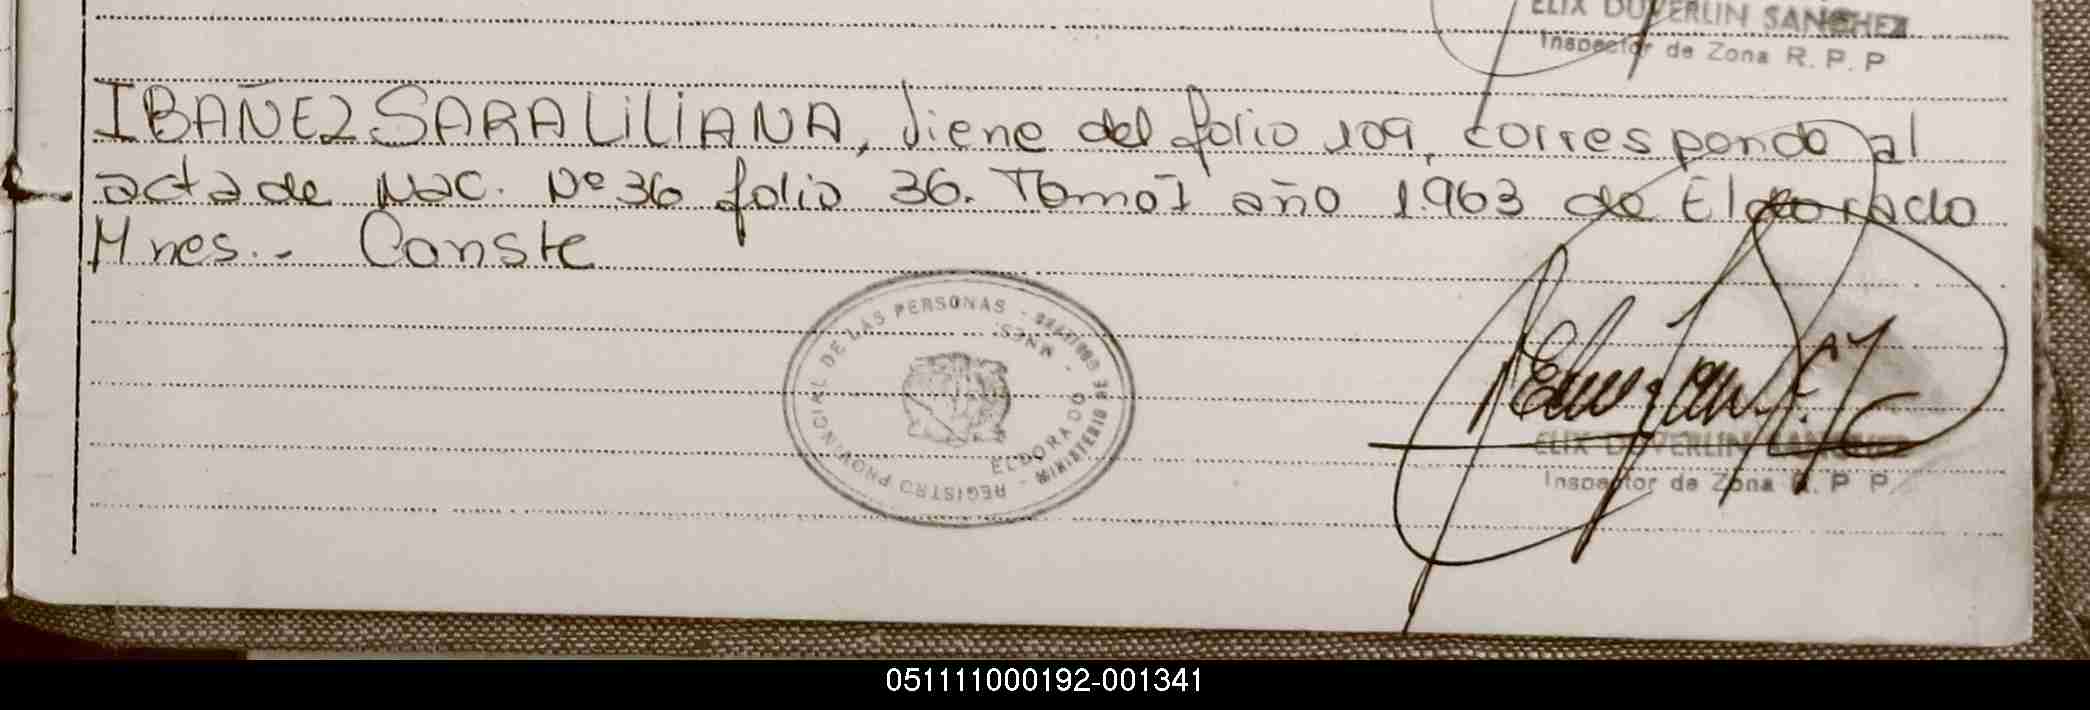 ELIX DUVERLIN SANCHEZ
Inspector de Zona R. P. P
IBAÑEZ SARA LILIANA, Viene del folio 109, corresponde al
acta de Nac. Nº 36 folio 36. Tomo I año 1963 de Eldorado
Mnes.- Conste
REGISTRO PROVINCIAL DE LAS PERSONAS - MINISTERIO DE
MNES. - ELDORADO
ELIX DUVERLIN SANCHEZ
Inspector de Zona R. P P.
051111000192-001341